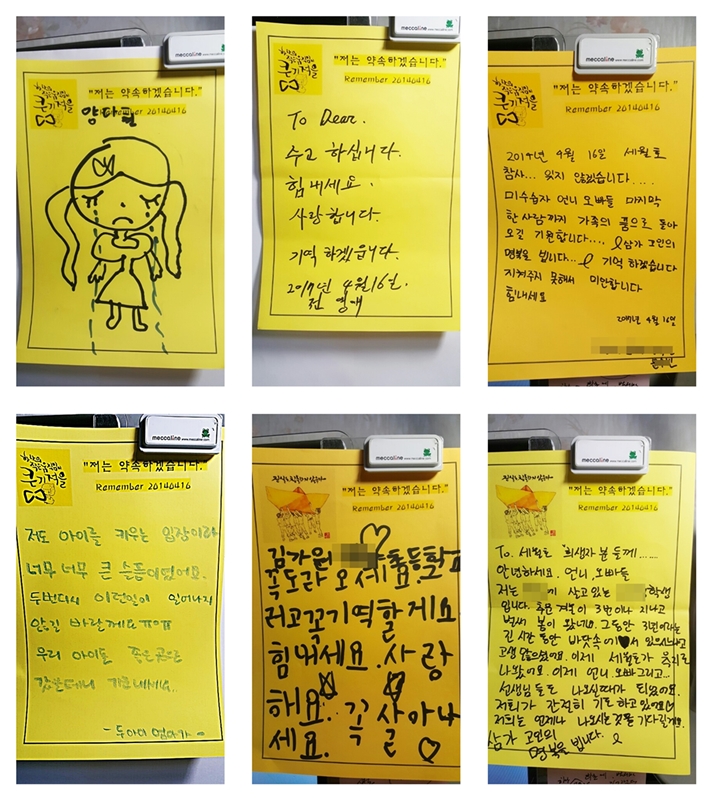 meccaline www.meccaline.com
"저는 약속하겠습니다."
Remember 20140416
양다교
meccaline www.meccaline.com
"저는 약속하겠습니다."
Remember 20140416
To Dear.
수고 하십니다.
힘내세요.
사랑합니다.
기억 하겠습니다.
2017년 4월16일.
전 영애
meccaline www.meccaline.com
"저는 약속하겠습니다."
Remember 20140416
2014년 4월 16일 세월호
참사... 잊지 않겠습니다....
미수습자 언니 오빠들 마지막
한사람까지 가족의 품으로 돌아
오길 기원합니다.... 삼가 고인의
명복을 빕니다... 기억 하겠습니다
지켜주지 못해서 미안합니다
힘내세요
2017년 4월 16일
meccaline www.meccaline.com
"저는 약속하겠습니다."
Remember 20140416
저도 아이를 키우는 입장이라
너무 너무 큰 슬픔이였어요.
두번다시 이런일이 일어나지
않길 바랄께요ㅠㅠ
우리 아이들 좋은곳은
갔을테니 기운내세요..
- 두아이 엄마가
meccaline www.meccaline.com
"저는 약속하겠습니다."
Remember 20140416
김가원 초등학교
꼭도라오세요.
러고꼭기역할게요
힘내세요.사랑
해요. 꼭 살아나
세요.
meccaline www.meccaline.com
"저는 약속하겠습니다."
Remember 20140416
To. 세월호 희생자 분들께......
안녕하세요. 언니, 오빠들
저는 에 살고있는 학생
입니다. 추운 겨울이 3번이나 지나고
벌써 봄이 왔네요. 그동안 3년이라는
긴 시간 동안 바닷속에서 있으시느라고
고생 많으셨어요. 이제 세월호가 육지로
나왔어요. 이제 언니, 오빠 그리고...
선생님들도 나오실때가 되었어요.
저희가 간절히 기도 하고있어요
저희는 언제나 나오시는 것을 기다릴게요.
삼가 고인의
명복을 빕니다.